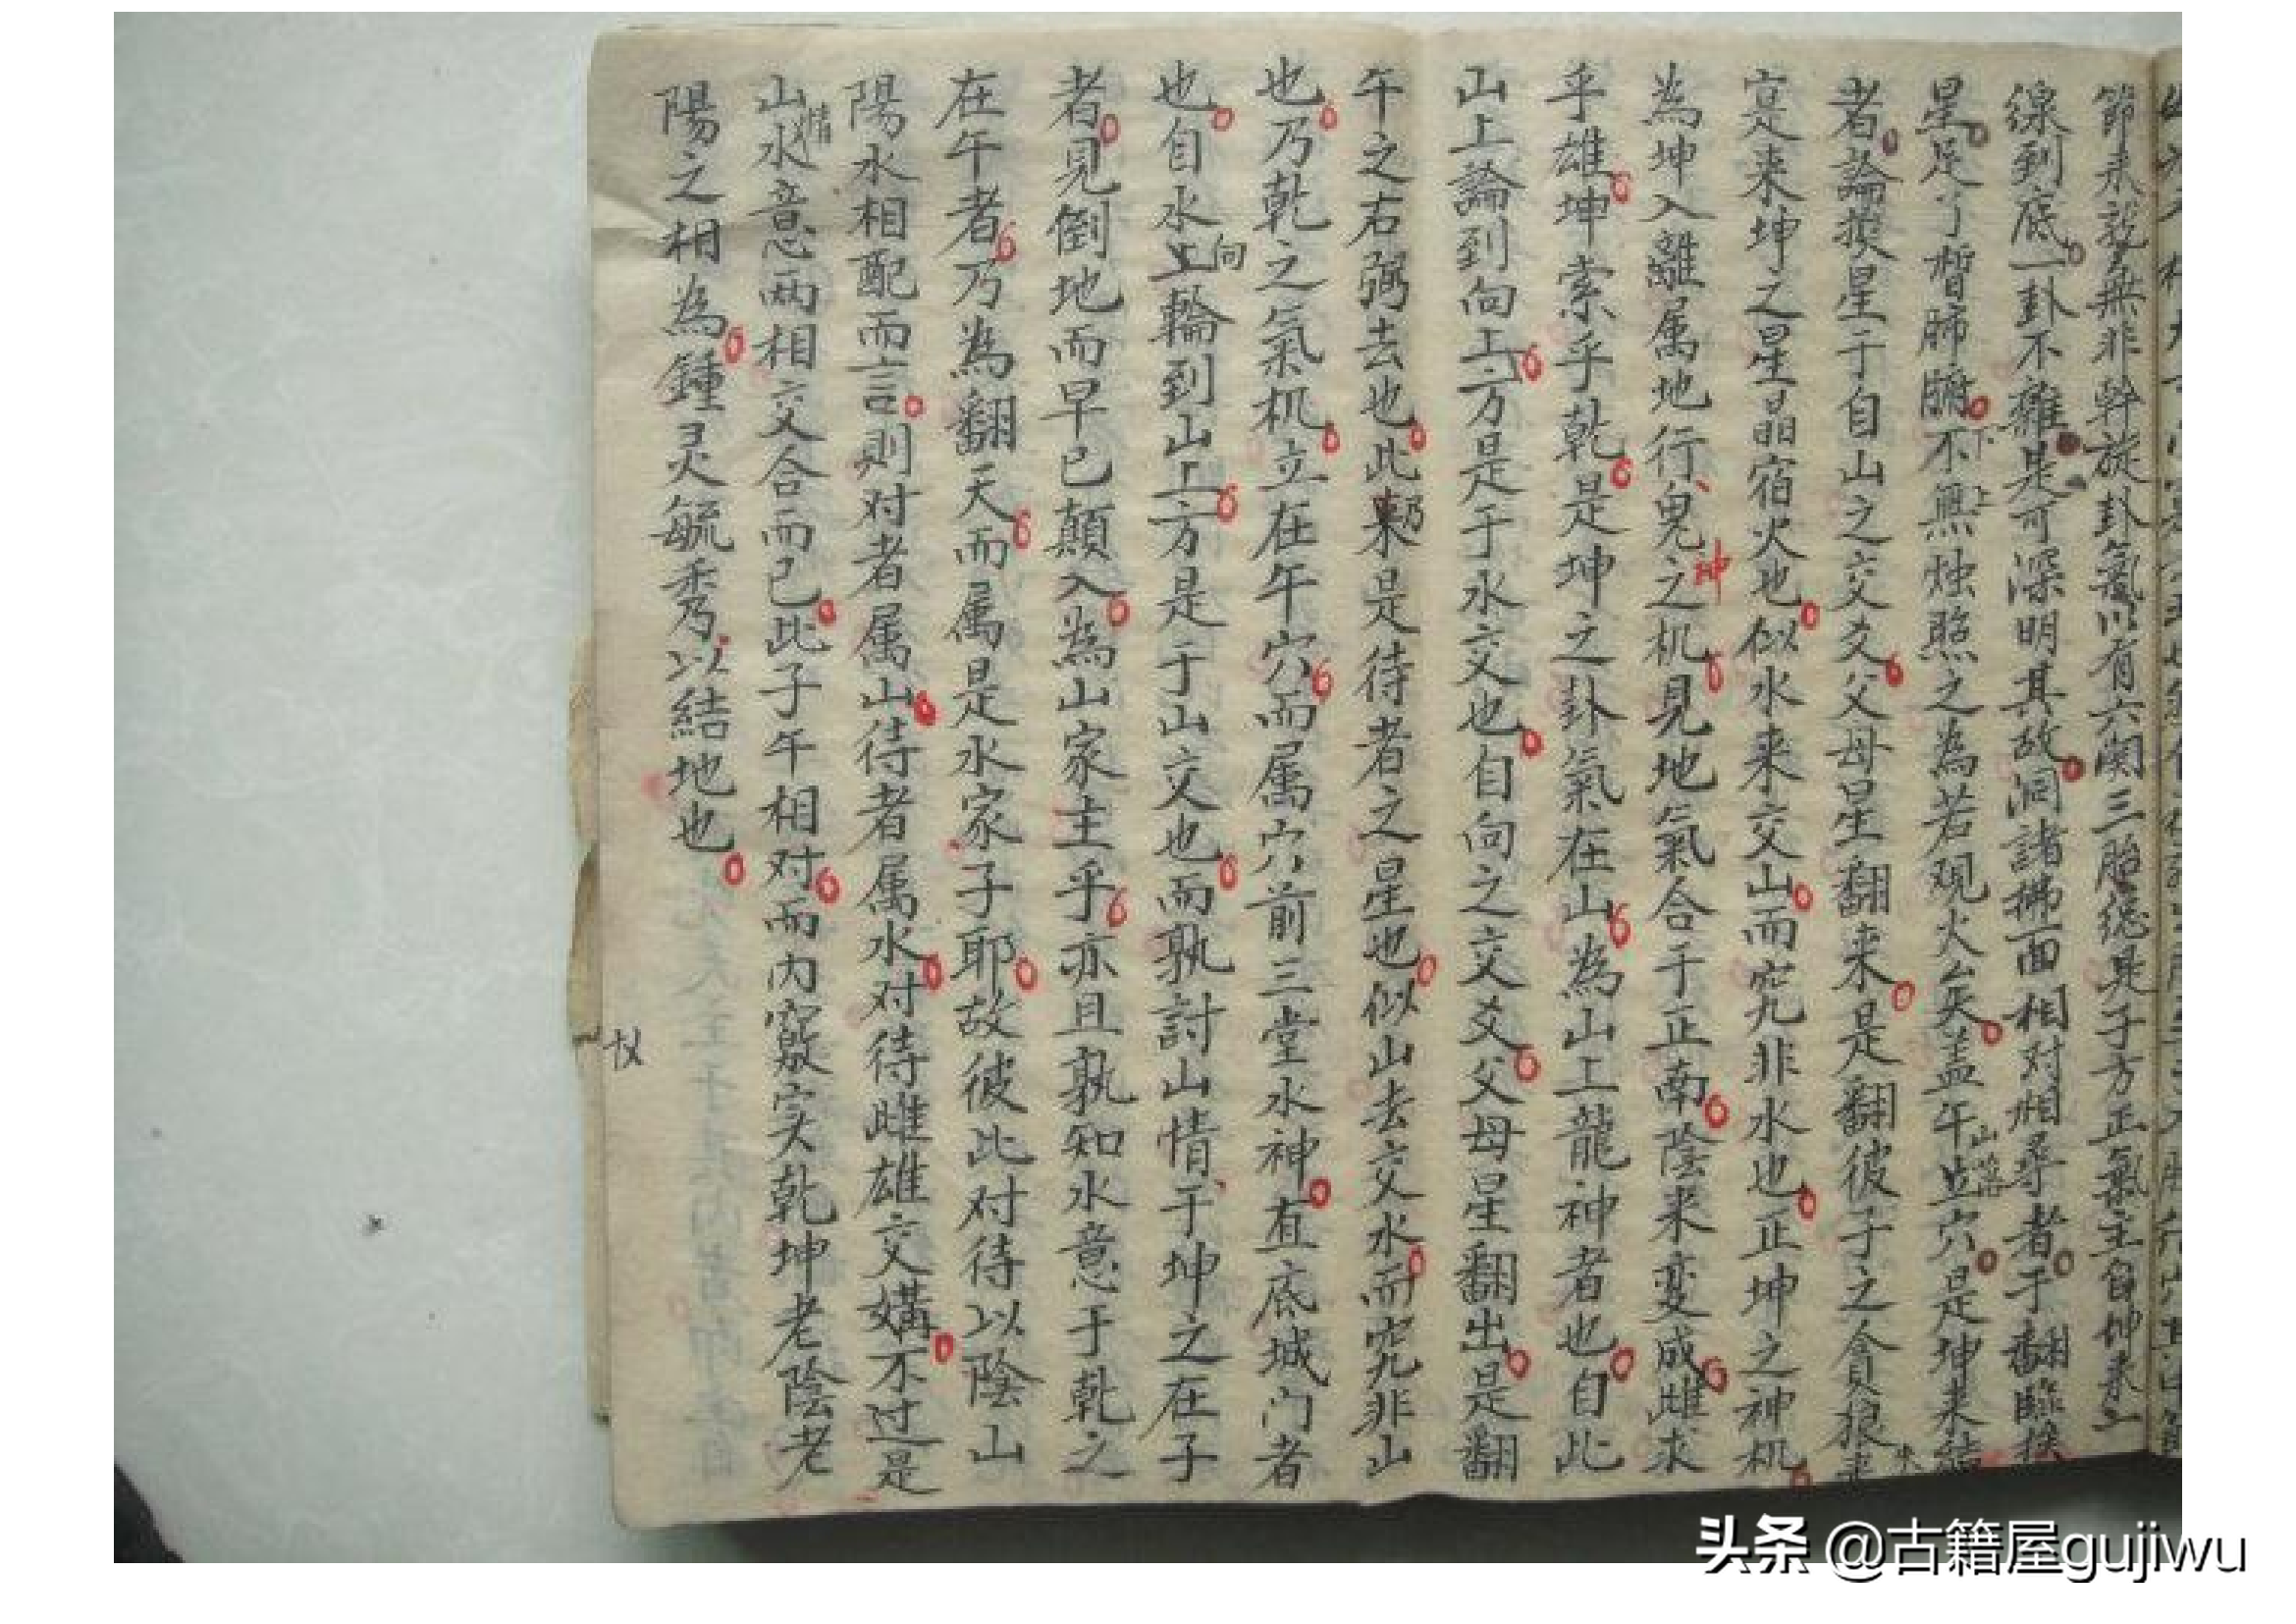 節來說無非幹旋卦氣以有六関三胎總是子方正氣主自坤來
線到底一卦不雜是可深明其故洞諸拂面相对相尋者于翻臨換
星足了暫肺腑不無烛照之為若观火矣盖午山穴是坤来結
者論換星于自山之交爻父母星翻来是翻彼子之貪狼来
寔来坤之星晶宿火也似水来交山而究非水也正坤之神机
為坤入離属地行鬼之机見地氣合于正南陰来変成雌求
乎雄坤索乎乾是坤之卦氣在山為山上龍神者也自此
山上論到向上方是于水交也自向之交爻父母星翻出是翻
午之右弼去也此乃是待者之星也似山去交水而究非山
也乃乾之氣机立在午穴而属穴前三堂水神直底城门者
也自水向上輪到山上方是于山交也而孰討山情于坤之在子
者見倒地而早已顛入為山家主乎亦且孰知水意于乾之
在午者乃為翻天而属是水家子耶故彼此对待以陰山
陽水相配而言則对者属山待者属水对待雌雄交媾不过是
山情水意两相交合而已此子午相对而内竅实乾坤老陰老
陽之相為鍾灵毓秀以結地也
头条 @古籍屋gujiwu